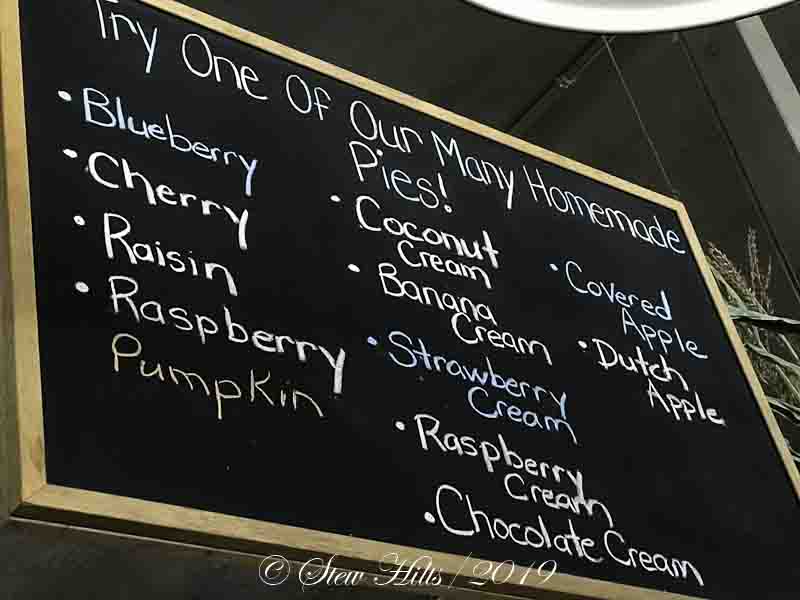 Try One Of Our Many Homemade
Pies!
• Blueberry
• Cherry
• Raisin
• Raspberry
Pumpkin
• Coconut
Cream
• Banana
Cream
• Strawberry
Cream
• Raspberry
Cream
• Chocolate Cream
• Covered
Apple
• Dutch
Apple
© Stew Hilts / 2019